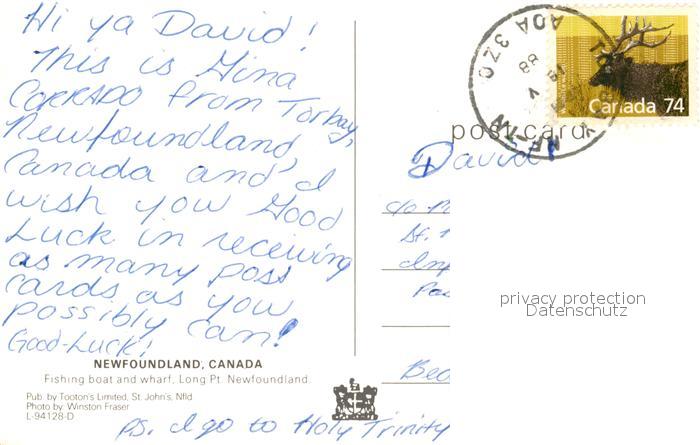 Hi ya David!
This is Gina
CORRADO from Torbay,
Newfoundland,
Canada and I
wish you Good
Luck in receiving
as many post
cards as you
possibly can!
Good-Luck!
NEWFOUNDLAND, CANADA
Fishing boat and wharf, Long Pt. Newfoundland.
Pub. by Tooton's Limited, St. John's, Nfld.
Photo by: Winston Fraser
L-94128-D
P.S. I go to Holy Trinity
A0A 3Z0
88
Canada 74
post card
David
c/o
St.
privacy protection
Datenschutz